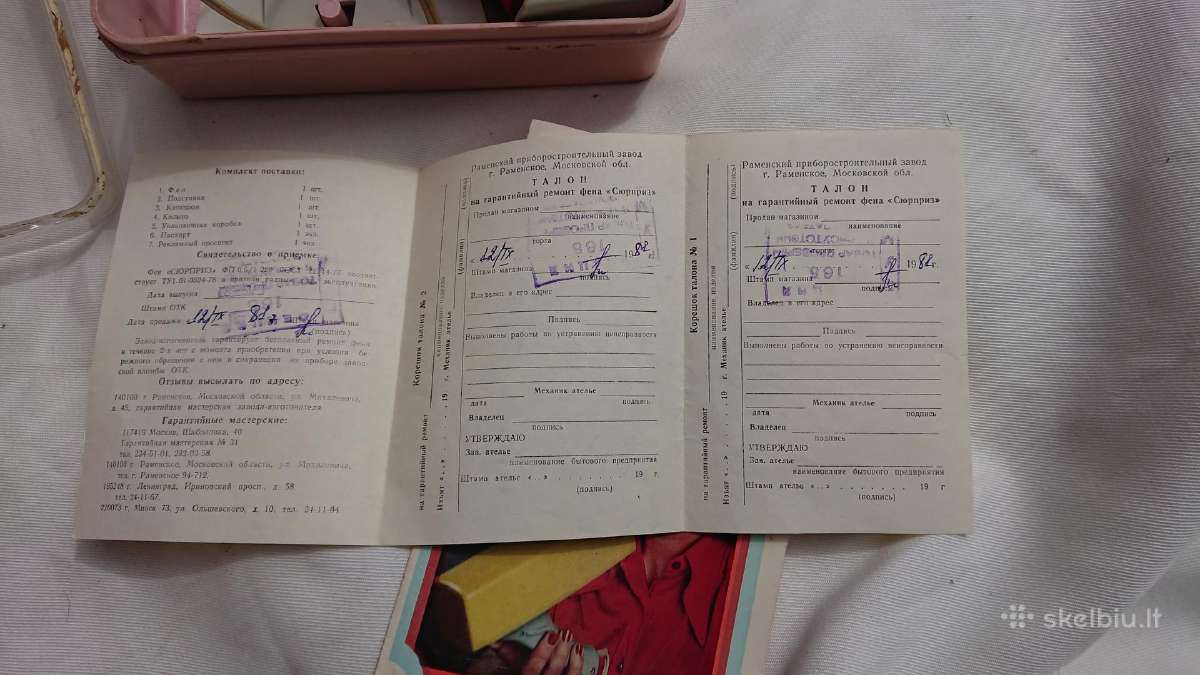 Комплект поставки:
1. Фен 1 шт.
2. Подставка 1 шт.
3. Капюшон 1 шт.
4. Кольцо 1 шт.
5. Упаковочная коробка 1 шт.
6. Паспорт 1 экз.
7. Рекламный проспект 1 экз.
Свидетельство о приемке:
Фен «СЮРПРИЗ»
Дата выпуска
Штамп ОТК
Дата продажи 12/IX 82 г.
(подпись)
Завод-изготовитель гарантирует бесплатный ремонт фена
в течение 2-х лет с момента приобретения при условии бе-
режного обращения с ним и сохранения на приборе завод-
ской пломбы ОТК.
Отзывы высылать по адресу:
140100 г. Раменское, Московской области, ул. Михалевича,
д. 45, гарантийная мастерская завода-изготовителя
Гарантийные мастерские:
117419 Москва, Шаболовка, 40
Гарантийная мастерская № 31
тел. 234-51-04,
140100 г. Раменское, Московской области, ул. Михалевича,
тел. г. Раменское 94-712.
195248 г. Ленинград, Ириновский просп., д. 58
тел. 24-11-67.
220073 г. Минск 73, ул. Ольшевского, д. 10, тел. 24-11-84
Корешок талона № 2
на гарантийный ремонт
наименование изделия
Изъят «..» . . . . . . . 19 г. Механик ателье
(фамилия)
(подпись)
Раменский приборостроительный завод
г. Раменское, Московской обл.
ТАЛОН
на гарантийный ремонт фена «Сюрприз»
Продан магазином
наименование
торга
« 12/IX 1982
Штамп магазина
подпись
Владелец и его адрес
Подпись
Выполнены работы по устранению неисправности
Механик ателье
дата подпись
Владелец
подпись
УТВЕРЖДАЮ
Зав. ателье
наименование бытового предприятия
Штамп ателье «..» . . . . . . . . 19 г.
(подпись)
Корешок талона № 1
на гарантийный ремонт
наименование изделия
Изъят «..» . . . . . . . 19 г. Механик ателье
(фамилия)
(подпись)
Раменский приборостроительный завод
г. Раменское, Московской обл.
ТАЛОН
на гарантийный ремонт фена «Сюрприз»
Продан магазином
наименование
« 12/IX 1982 г.
Штамп магазина
подпись
Владелец и его адрес
Подпись
Выполнены работы по устранению неисправности
Механик ателье
дата подпись
Владелец
подпись
УТВЕРЖДАЮ
Зав. ателье
наименование бытового предприятия
Штамп ателье «..» . . . . . . . . 19 г
(подпись)
skelbiu.lt